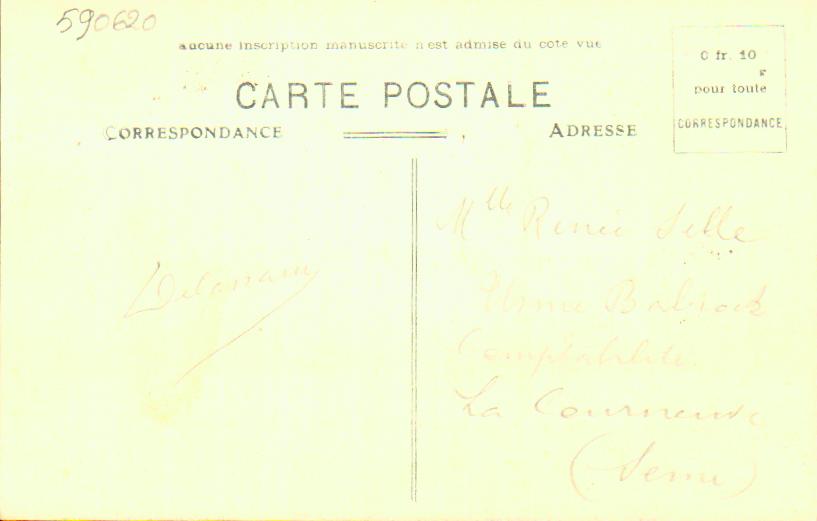 590620
aucune inscription manuscrite n'est admise du coté vue
0 fr. 10
pour toute
CORRESPONDANCE
CARTE POSTALE
CORRESPONDANCE
ADRESSE
Mlle Renée Selle
Usine Babcock
Comptabilité
La Courneuve
(Seine)